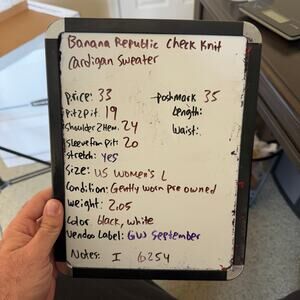 Banana Republic Check Knit
Cardigan Sweater
price: 33
poshmark 35
pit2pit: 19
Length:
Shoulder2Hem: 24
Waist:
sleeve from pit: 20
stretch: yes
Size: US Women's L
Condition: Gently worn pre owned
weight: 2.05
Color: black, white
Vendoo Label: GW September
Notes: I 6254